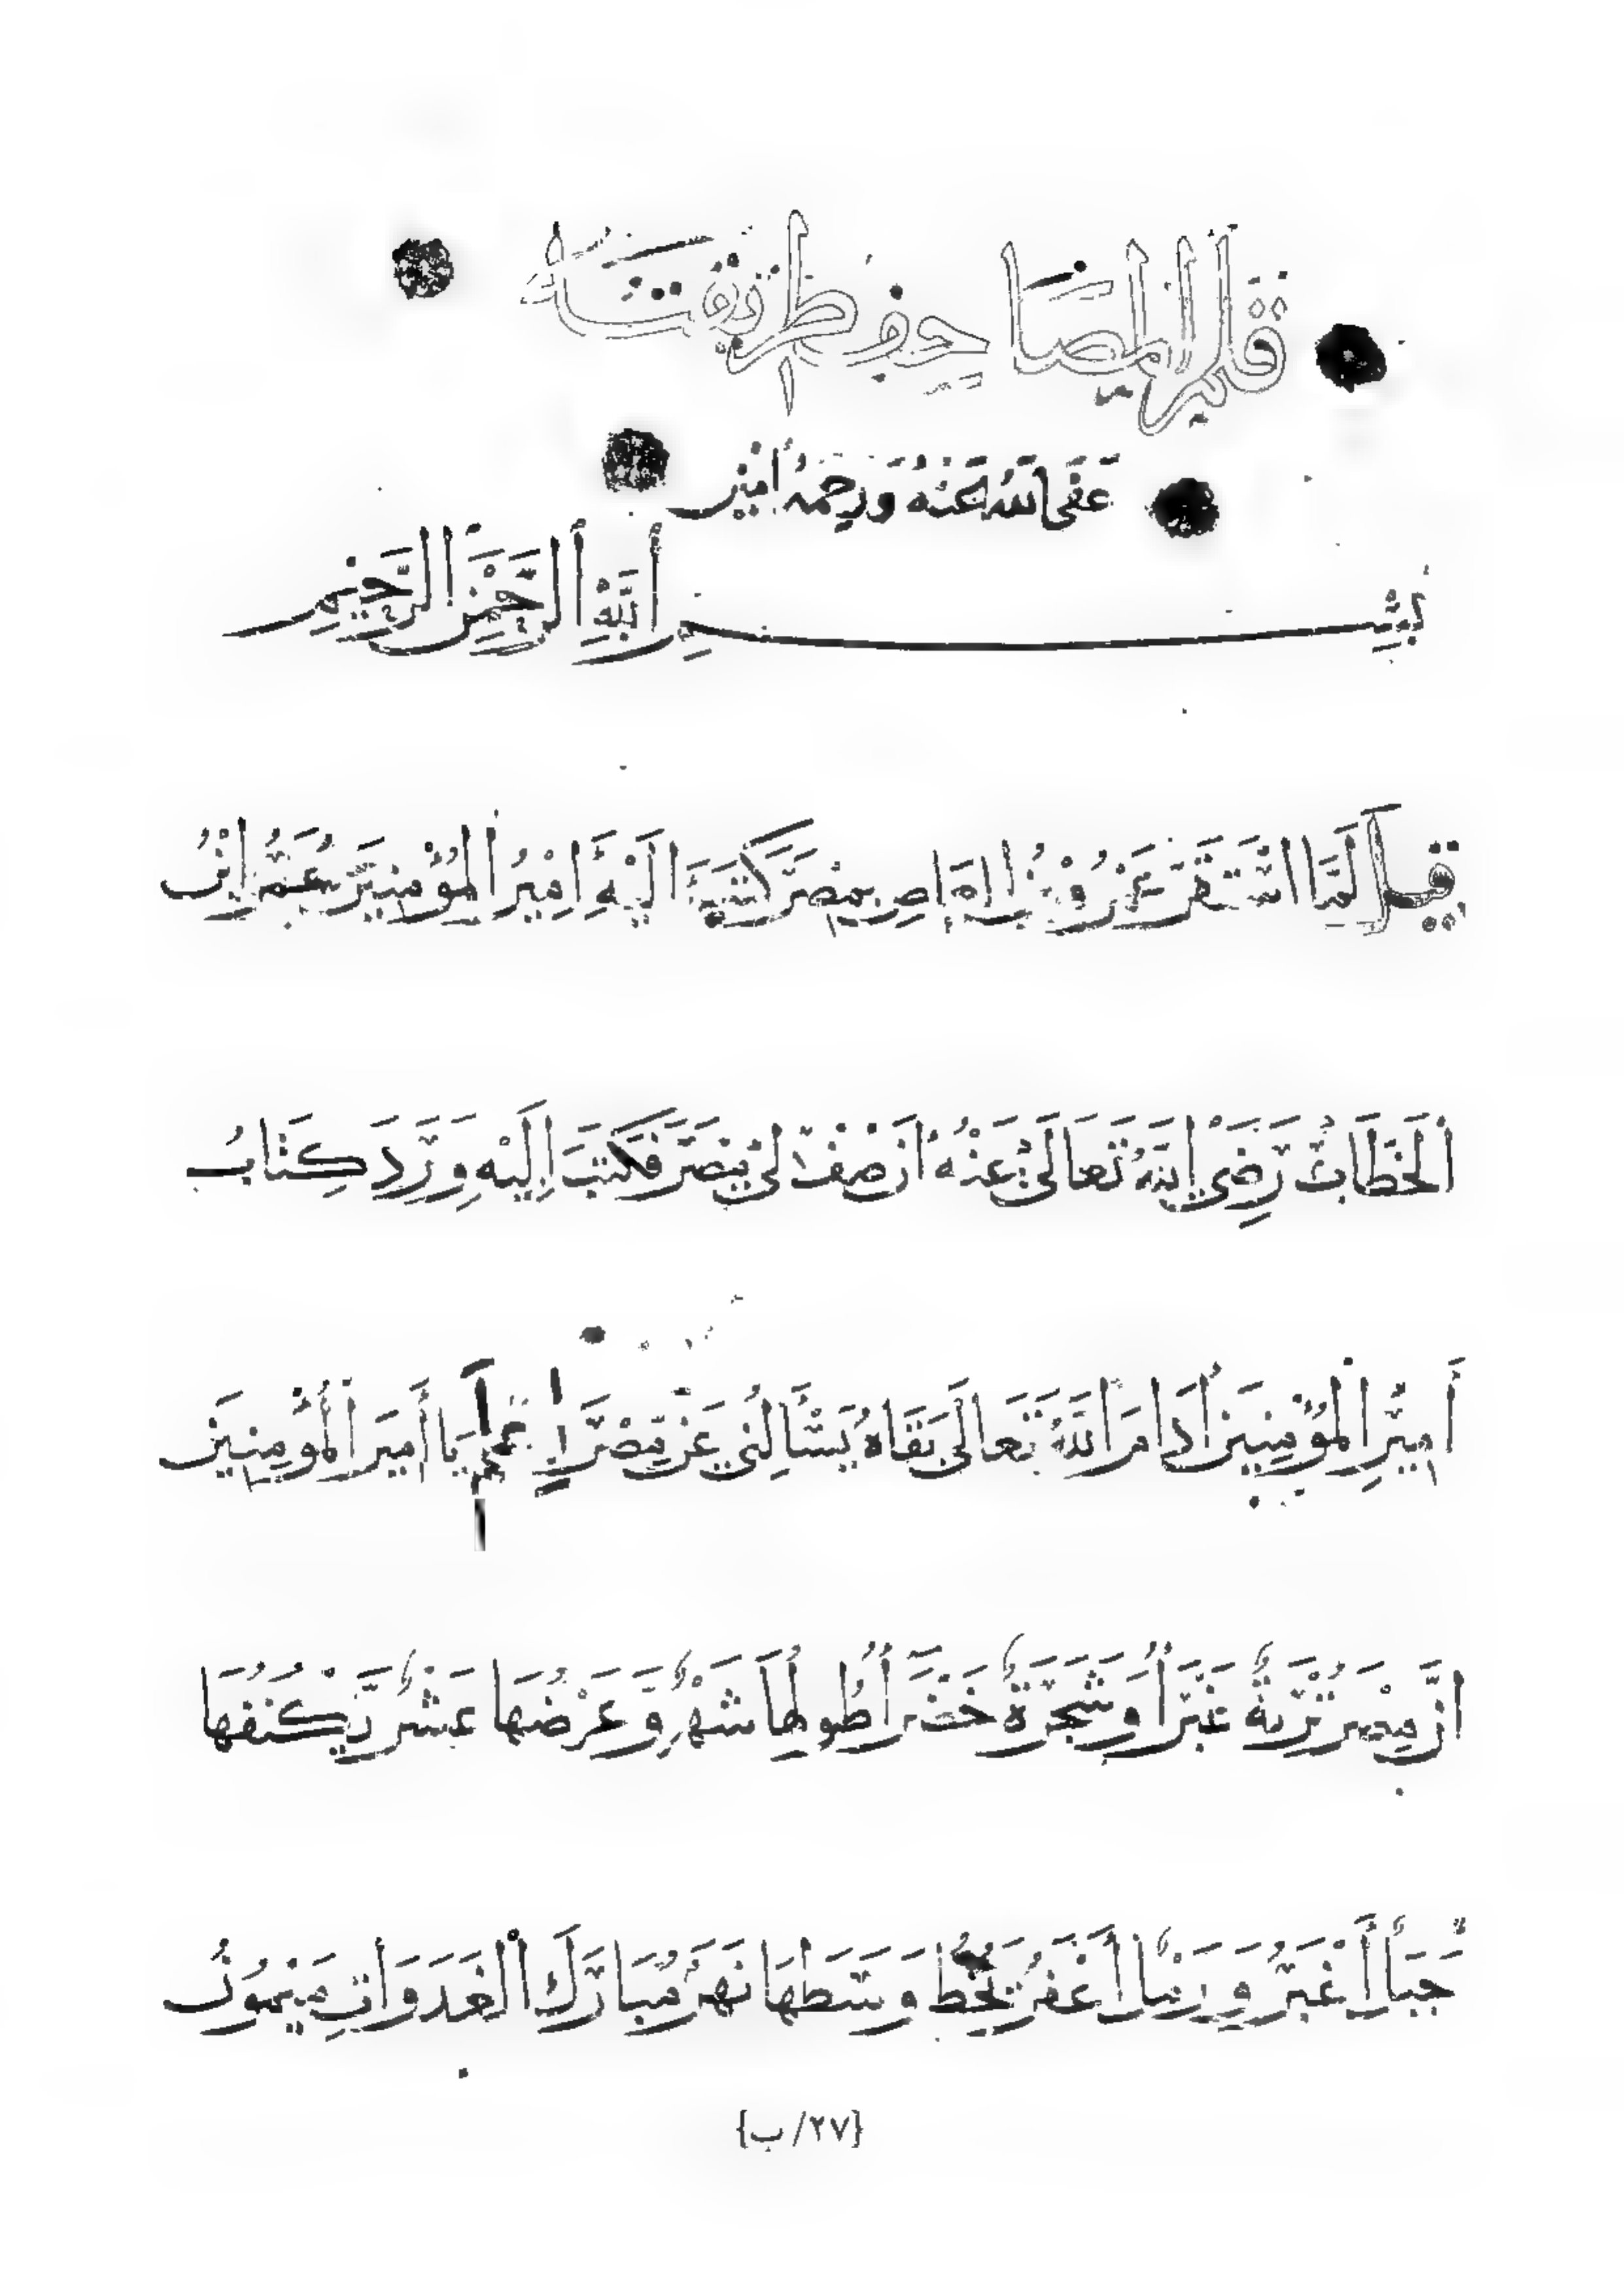 قلم المصاحف وطريقته
عفى الله عنه ورحمه امين
بسم الله الرحمن الرحيم
قيل لما استقر عمرو بن العاص بمصر كتب اليه امير المؤمنين عمر ابن
الخطاب رضي الله تعالى عنه ان صف لي مصر فكتب اليه ورد كتاب
أمير المؤمنين أدام الله تعالى بقاه يسألني عن مصر اعلم يا أمير المؤمنين
ان مصر تربة غبرا وشجرة خضرا طولها شهر وعرضها عشر يكنفها
جبل أغبر ورمل أعفر يخط وسطها نهر مبارك الغدوات ميمون
{٢٧/ب}